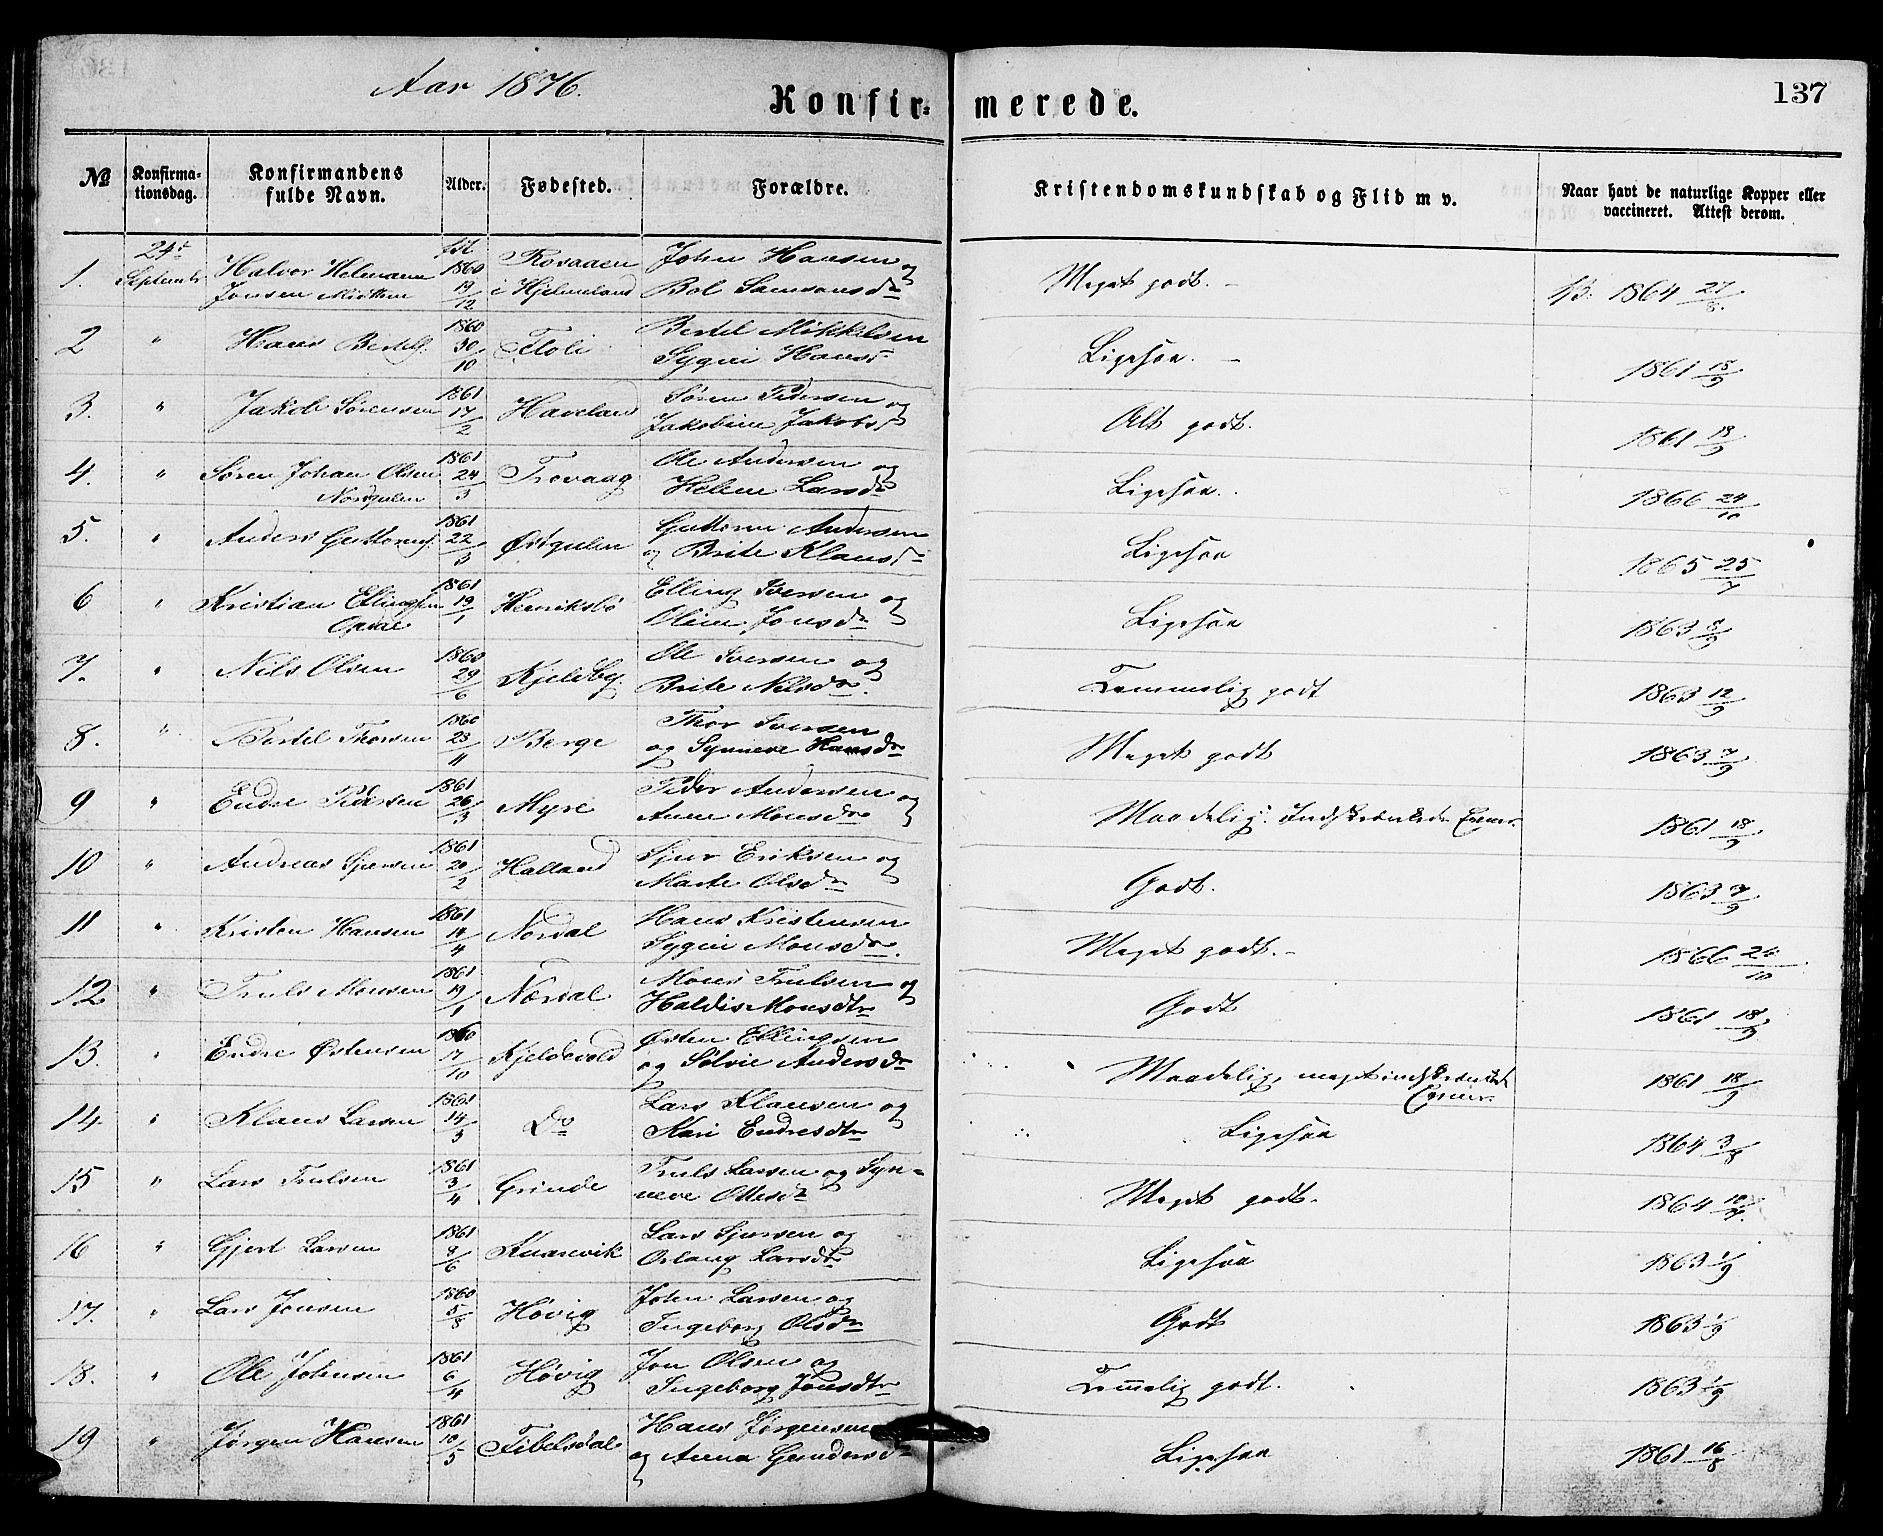 Aar 1876.
Konfirmerede.
137
№
Konfirmationsdag.
Konfirmandens fulde Navn.
Alder.
Fødested.
Forældre.
Kristendomskundskab og Flid m v.
Naar havt de naturlige Kopper eller vaccineret. Attest derom.
1. 24de Septemb Halvor Jonsen 1860 19/12 i Hjelmeland John Hansen og Bol Samsonsdr Meget godt. 1864 27/8
2 " Hans Bertels. 1860 30/10 Floli Bertel Mikkelsen Sygni Hansd Ligesaa. 1861 18/9
3. " Jakob Sørensen 1861 17/2 Haveland Søren Pedersen og Jakobine Jakobsd Alt godt. 1861 18/9
4. " Søren Johan Olsen Nordgulen 1861 24/3 Trovaag Ole Andersen og Helene Larsdr Ligesaa. 1866 24/10
5. " Anders Guttorms. 1861 22/3 Østgulen Guttorm Andersen og Brite Klausd Ligesaa 1865 25/7
6 " Kristian Ellingsen Opdal 1861 19/1 Henriksbø Elling Iversen og Oline Jonsdr Ligesaa 1863 8/9
7. " Nils Olsen 1860 29/6 Kjeldby Ole Iversen og Brite Nilsdr. Temmelig godt 1863 12/9
8. " Bertel Thorsen 1860 23/11 Berge Thor Iversen og Synneve Hansdr Meget godt 1863 7/9
9 " Endre Pedersen 1861 26/3 Myre Peder Andersen og Anne Monsdr Maadelig. Indskrænkede Evner. 1861 18/9
10 " Andreas Sjursen 1861 20/2 Halland Sjur Eriksen og Marte Olsdr Godt. 1863 7/9
11 " Kristen Hansen 1861 14/4 Nordal Hans Kristensen Sygni Monsdr. Meget godt. 1866 24/10
12 " Truls Monsen 1861 19/1 Nordal Mons Trulsen og Haldis Monsdtr Godt 1861 18/9
13. " Endre Østensen 1860 17/10 Kjeldevold Østen Ellingsen og Sølvie Andersdr Maadelig, meget indskrænkede Evner. 1861 18/9
14. " Klaus Larsen 1861 14/3 Do Lars Klausen og Kari Endresdtr Ligesaa 1864 3/8
15 " Lars Trulsen 1861 3/4 Grinde Truls Larsen og Synneve Ottesdr Meget godt. 1864 10/7
16 " Gjert Larsen 1861 9/6 Knarevik Lars Sjursen og Oslaug Larsdtr Ligesaa 1863 1/9
17. " Lars Jonsen 1860 5/8 Høvig John Larsen og Ingeborg Olsdr Godt 1863 1/9
18. " Ole Johnsen 1861 6/4 Høvig Jon Olsen og Ingeborg Jonsdtr Temelig godt. 1863 1/9
19 " Jørgen Hansen 1861 10/5 Fibelsdal Hans Jørgensen og Anna Gundersdr Ligesaa 1861 16/8